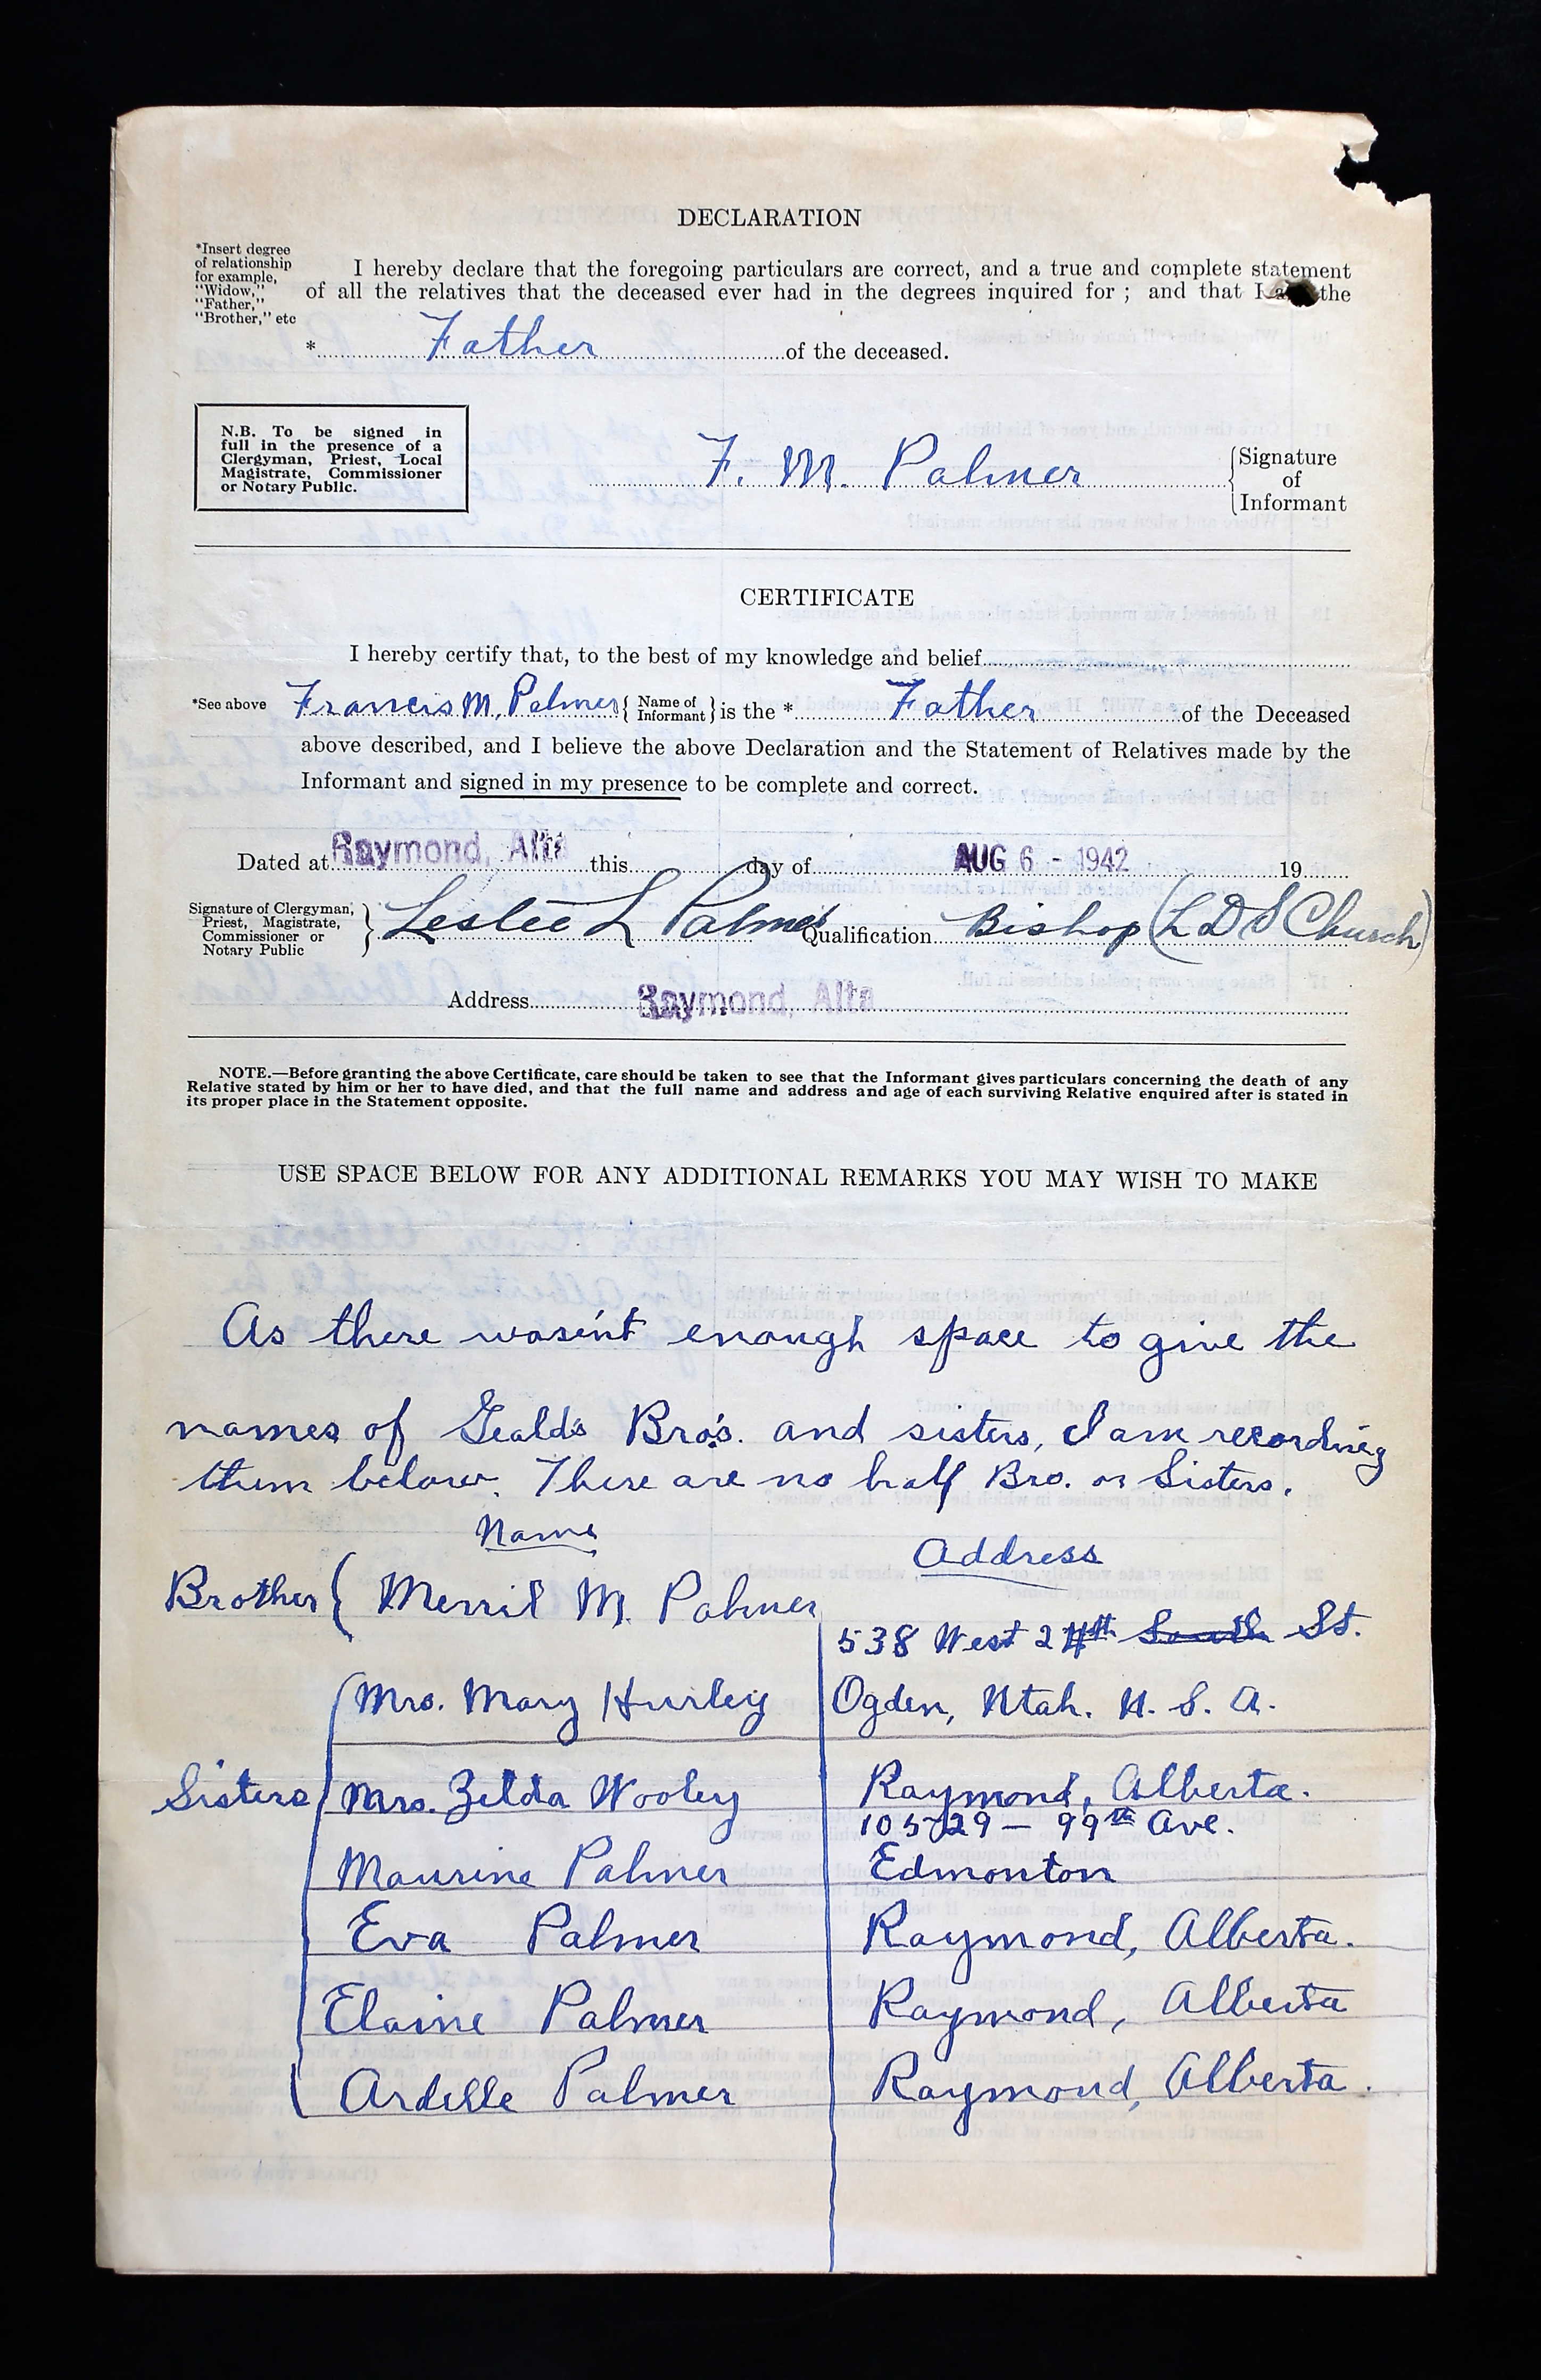 DECLARATION
*Insert degree
of relationship
for example,
"Widow,"
"Father,"
"Brother," etc
I hereby declare that the foregoing particulars are correct, and a true and complete statement
of all the relatives that the deceased ever had in the degrees inquired for ; and that I the
* Father of the deceased.
N.B. To be signed in
full in the presence of a
Clergyman, Priest, Local
Magistrate, Commissioner
or Notary Public.
F. M. Palmer
Signature
of
Informant
CERTIFICATE
I hereby certify that, to the best of my knowledge and belief
*See above Francis M. Palmer { Name of Informant } is the * Father of the Deceased
above described, and I believe the above Declaration and the Statement of Relatives made by the
Informant and signed in my presence to be complete and correct.
Dated at Raymond, Alta this day of AUG 6 - 1942 19
Signature of Clergyman,
Priest, Magistrate,
Commissioner or
Notary Public
} Leslie L Palmer Qualification Bishop (L D S Church)
Address Raymond, Alta
NOTE.—Before granting the above Certificate, care should be taken to see that the Informant gives particulars concerning the death of any
Relative stated by him or her to have died, and that the full name and address and age of each surviving Relative enquired after is stated in
its proper place in the Statement opposite.
USE SPACE BELOW FOR ANY ADDITIONAL REMARKS YOU MAY WISH TO MAKE
As there wasen't enough space to give the
names of Geald's Bro's. and sisters, I am recording
them below. There are no half Bro. or Sisters.
Name
Address
Brother { Merril M. Palmer
538 West 2 St.
Mrs. Mary Hurley Ogden, Utah. U. S. A.
Sisters Mrs. Zelda Wooley Raymond, Alberta.
10529 – 99th Ave.
Maurine Palmer Edmonton
Eva Palmer Raymond, Alberta.
Elaine Palmer Raymond, Alberta
Ardelle Palmer Raymond, Alberta.